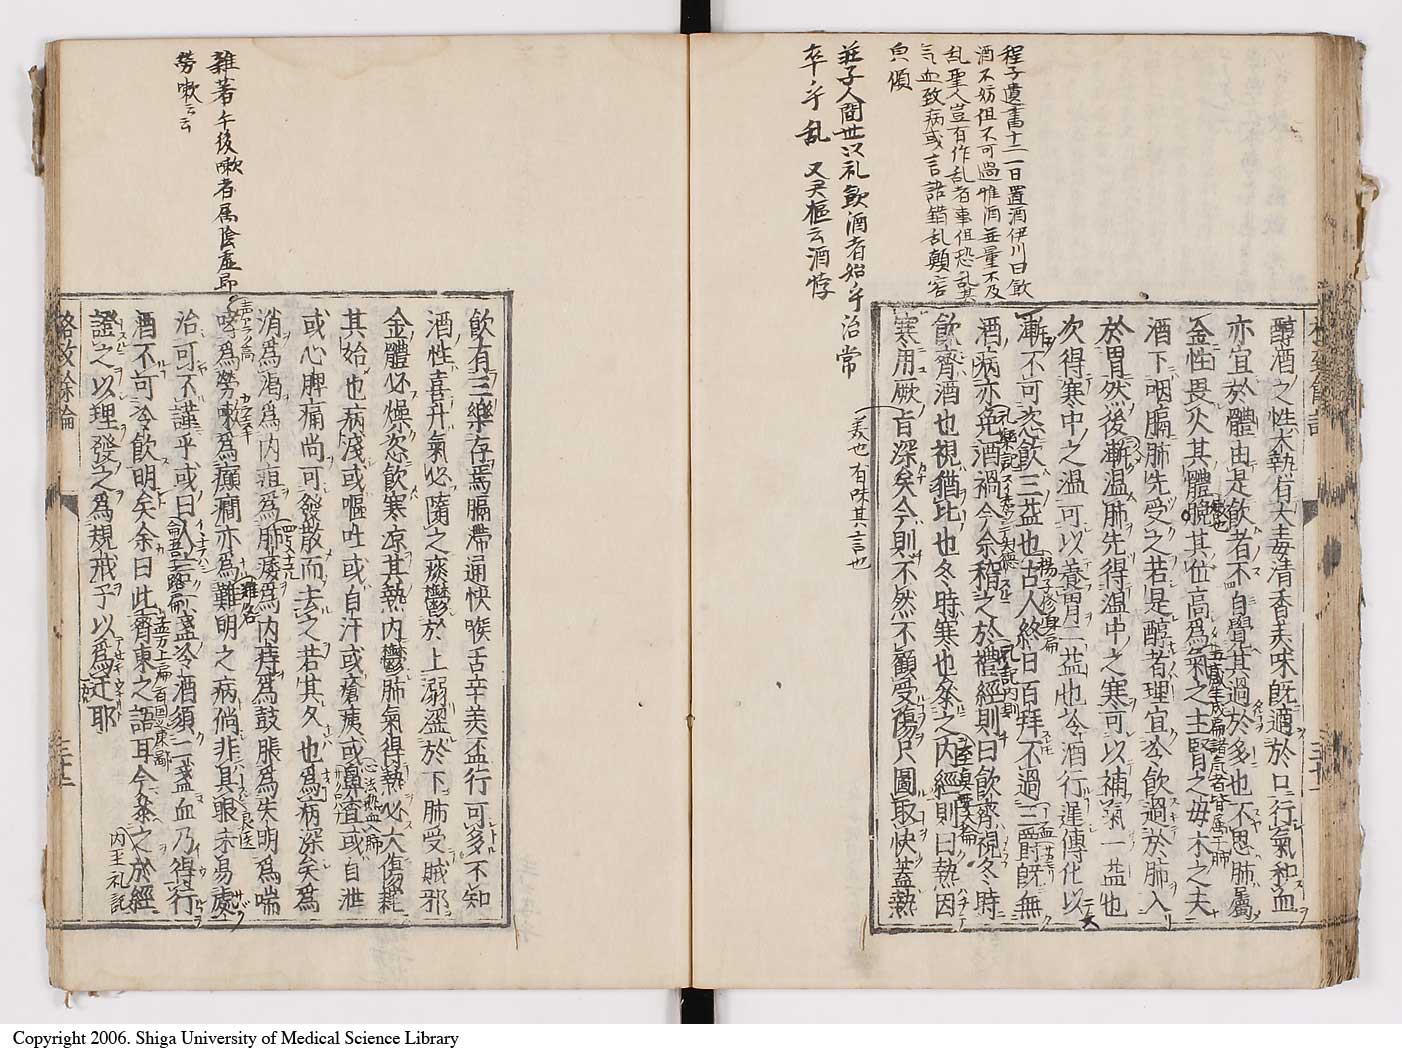 程子遺書十二一日置酒伊川曰飲
酒不妨但不可過惟酒無量不及
乱聖人豈有作乱者事但恐乱其
気血致病或言語錯乱顛
莊子人間世以礼飲酒者始乎治常
卒乎乱 又尹樞云酒悖
醇酒之性大熱有大毒清香美味既適於口行氣和血
亦宜於體由是飲者不自覺其過於多也不思肺屬
金性畏火其體脆其位高為氣之主腎之母木之夫
酒下咽膈肺先受之若是醇者理宜冷飲過於肺入
於胃然後漸温肺先得温中之寒可以補氣一益也
次得寒中之温可以養胃二益也冷酒行遲傳化以
漸不可恣飲三益也古人終日百拜不過三爵既無
酒病亦免酒禍今余稽之於禮經則曰飲齊視冬時
飲齊酒也視猶比也冬時寒也參之内經則曰熱因
寒用厥旨深矣今則不然不顧受傷只圖取快蓋熱
美也有味其言也
飲有三樂存焉膈滯通快喉舌辛美盃行可多不知
酒性喜升氣必隨之痰鬱於上溺澁於下肺受賊邪
金體必燥恣飲寒凉其熱内鬱肺氣得熱必大傷耗
其始也病淺或嘔吐或自汗或瘡痍或鼻査或自泄
或心脾痛尚可發散而去之若其久也為病深矣為
消為渴為内疽為肺痿為内痔為鼓脹為失明為喘
哮為勞嗽為癲癇亦為難明之病倘非具眼未易處
治可不謹乎或曰人言一盞冷酒須二盞血乃得行
酒不可冷飲明矣余曰此齊東之語耳今參之於經
證之以理發之為規戒子以為迂耶
格致餘論
雜著午後嗽者属陰虚即
勞嗽云云
Copyright 2006. Shiga University of Medical Science Library